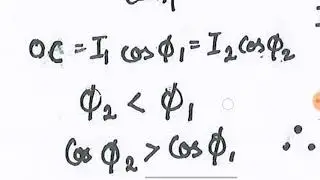 OC = I₁ cos ϕ₁ = I₂ cos ϕ₂
ϕ₂ < ϕ₁
Cos ϕ₂ > Cos ϕ₁ ∴